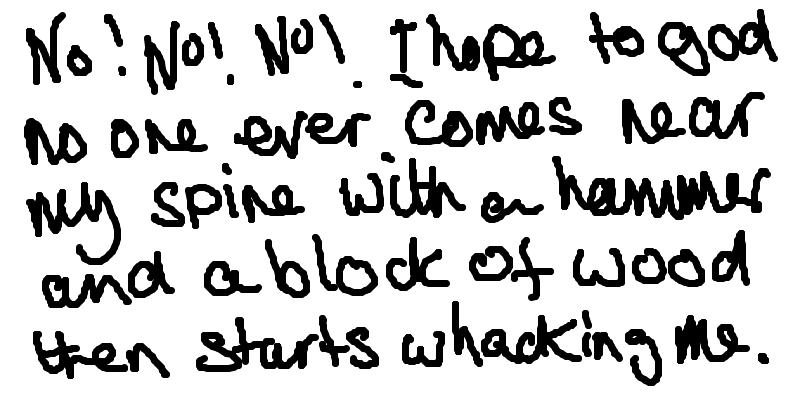 No! No! No! I hope to god
no one ever comes near
my spine with a hammer
and a block of wood
then starts whacking me.